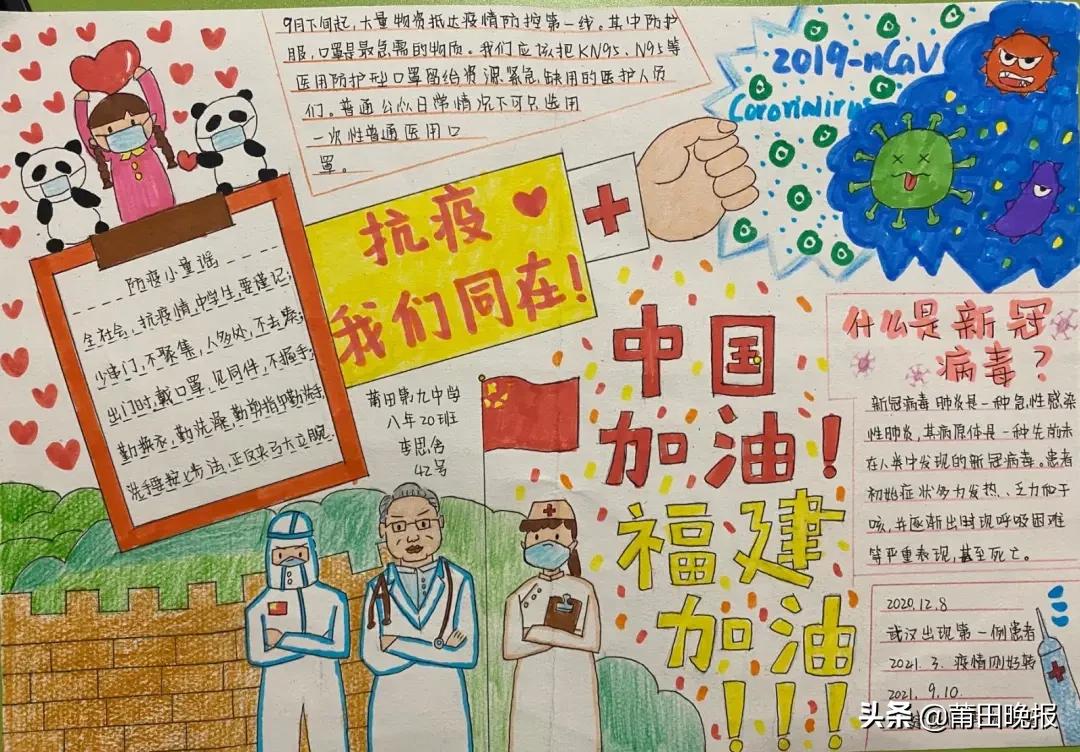 9月下旬起,大量物资抵达疫情防控第一线。其中防护
服,口罩是最急需的物质。我们应该把KN95、N95等
医用防护型口罩留给资源紧急缺用的医护人员
们。普通公众日常情况下可只选用
一次性普通医用口
罩。
2019-nCaV
Coronavirus
抗疫
我们同在!
防疫小童谣
全社会,抗疫情,中学生,要谨记;
少串门,不聚集,人多处,不去凑;
出门时,戴口罩,见同伴,不握手;
勤换衣,勤洗澡,勤剪指甲勤洗手,
洗手要按七步法,正反夹弓大立腕.
莆田第九中学
八年20班
李思
42号
中国
加油!
福建
加油
!!!
什么是新冠
病毒?
新冠病毒肺炎是一种急性感染
性肺炎,其病原体是一种先前未
在人类中发现的新冠病毒。患者
初始症状多为发热、乏力和干
咳,并逐渐出现呼吸困难
等严重表现,甚至死亡。
2020.12.8
武汉出现第一例患者
2021.3.疫情刚好转
2021.9.10.
头条 @莆田晚报